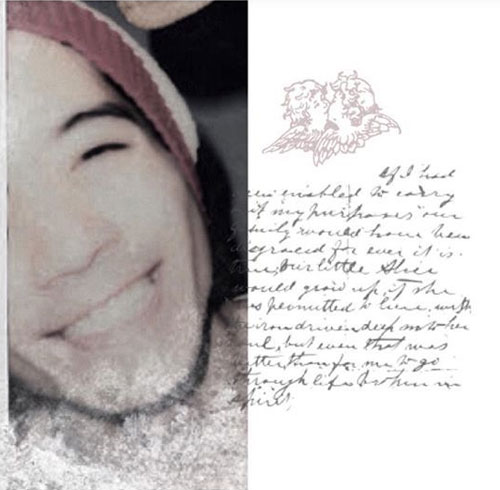 If I had
been enabled to carry
out my purposes our
family would have been
disgraced for ever it is
true, our little Alice
would grow up, if she
was permitted to live, with
iron driven deep into her
soul, but even that was
better than for me to go
through life broken in
spirit,